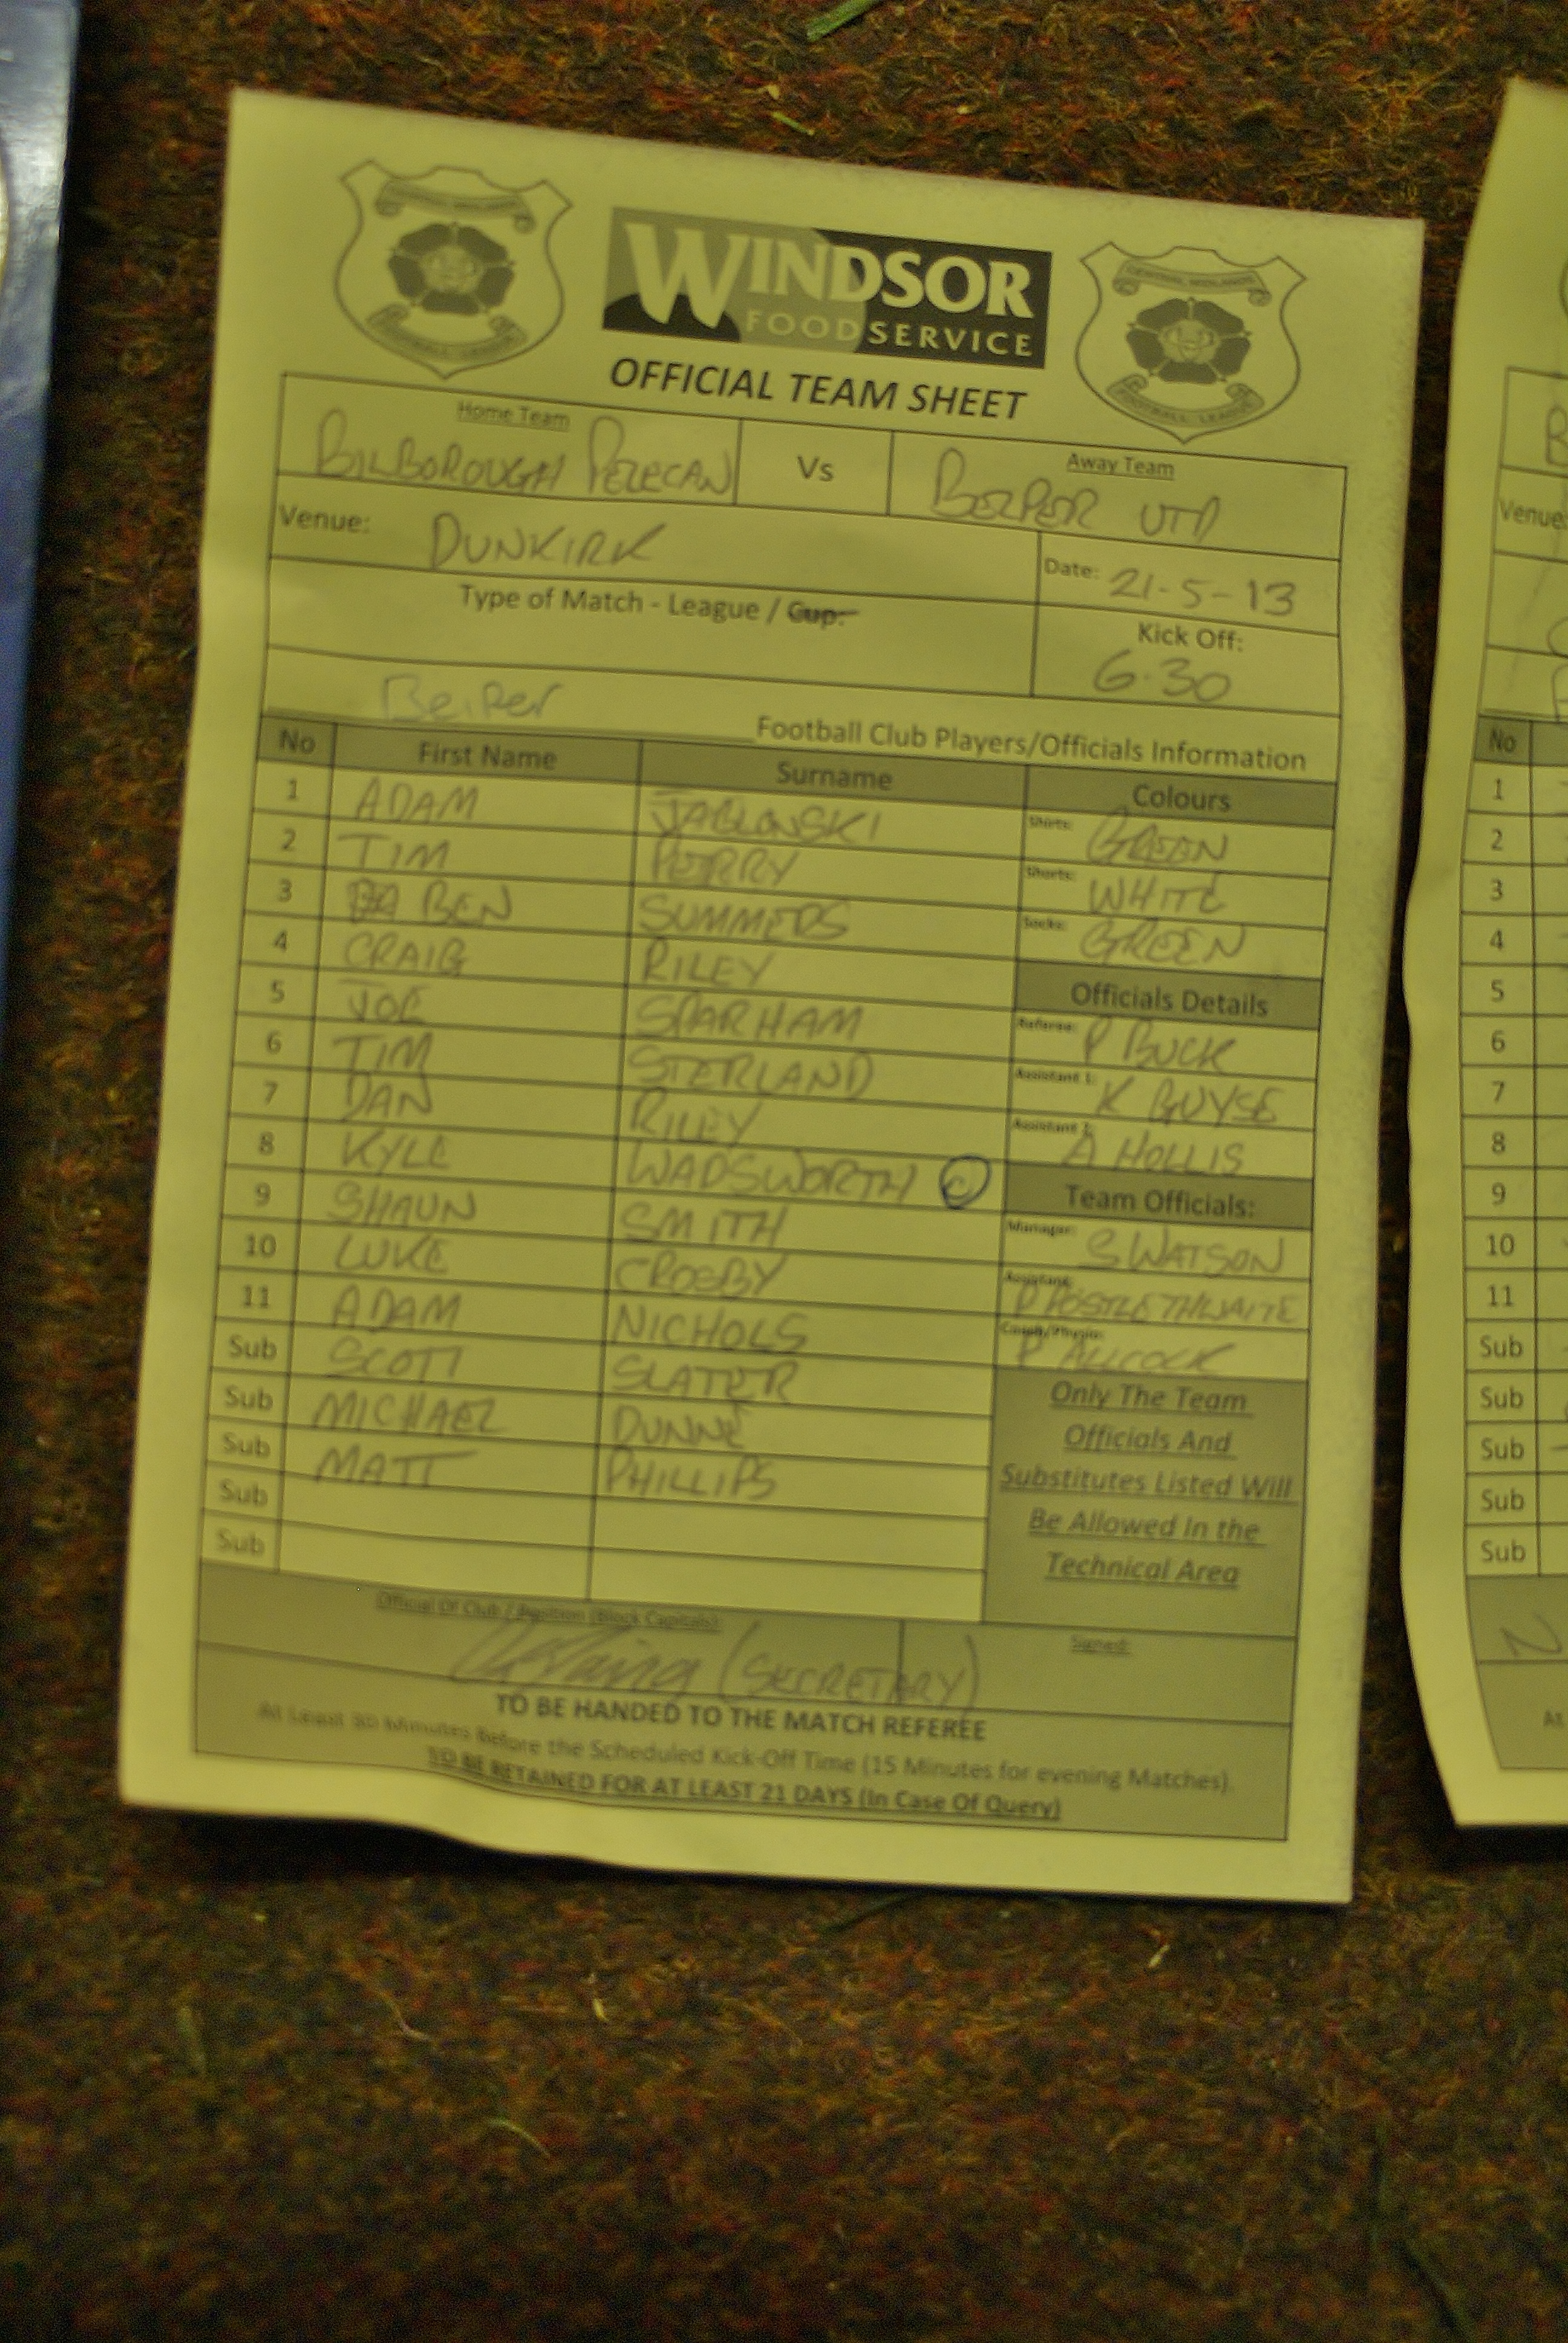 WINDSOR
FOODSERVICE
OFFICIAL TEAM SHEET
Home Team
BILBOROUGH PELECAN
Vs
Away Team
BELPER UTD
Venue: DUNKIRK
Date: 21-5-13
Type of Match - League / Cup:
Kick Off: 6.30
Belper Football Club Players/Officials Information
No First Name Surname Colours
1 ADAM JABLONSKI Shirts: GREEN
2 TIM PERRY Shorts: WHITE
3 BEN SUMMERS Socks: GREEN
4 CRAIG RILEY Officials Details
5 JOE SPARHAM Referee: P BUCK
6 TIM STERLAND Assistant 1: K GUYSE
7 DAN RILEY Assistant 2: A HOLLIS
8 KYLE WADSWORTH C Team Officials:
9 SHAUN SMITH Manager: S WATSON
10 LUKE CROSBY Assistant: P POSTLETHWAITE
11 ADAM NICHOLS Coach/Physio: P ALLCOCK
Sub SCOTT SLATER
Sub MICHAEL DUNNE
Sub MATT PHILLIPS
Sub
Sub
Only The Team
Officials And
Substitutes Listed Will
Be Allowed In the
Technical Area
Official Of Club / Position (Block Capitals):
(SECRETARY)
Signed:
TO BE HANDED TO THE MATCH REFEREE
At Least 30 Minutes Before the Scheduled Kick-Off Time (15 Minutes for evening Matches).
TO BE RETAINED FOR AT LEAST 21 DAYS (In Case Of Query)
Venue:
No
1
2
3
4
5
6
7
8
9
10
11
Sub
Sub
Sub
Sub
Sub
N
At